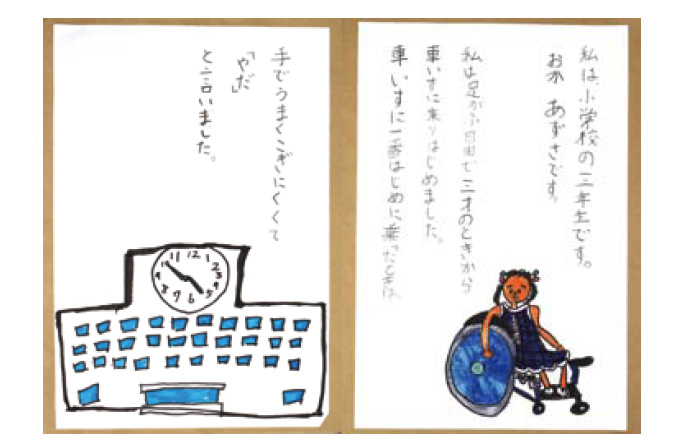 私は、小学校の三年生です。
おか あずさです。
私は足がふ自由で三才のときから
車いすに乗りはじめました。
車いすに一番はじめに乗ったときは、
手でうまくこぎにくくて
「やだ」
と言いました。
12 1 2 3 4 5 6 7 8 10 11